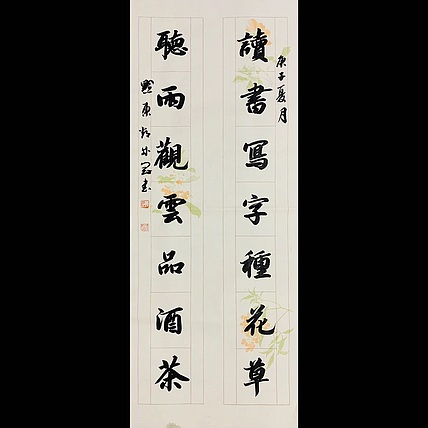 庚子夏月
讀書寫字種花草
聽雨觀雲品酒茶